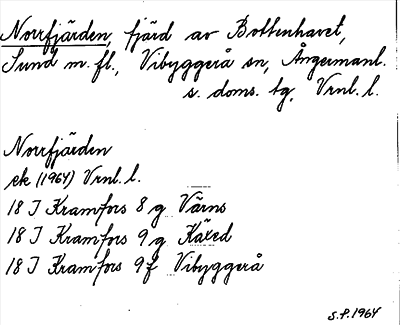 Norrfjärden, fjärd av Bottenhavet,
Sund m. fl., Vibyggerå sn, Ångermanl.
s. doms. tg, Vrnl. l.
Norrfjärden
ek (1964) Vrnl. l.
18 I Kramfors 8 g Värns
18 I Kramfors 9 g Käxed
18 I Kramfors 9 f Vibyggerå
S.P. 1964